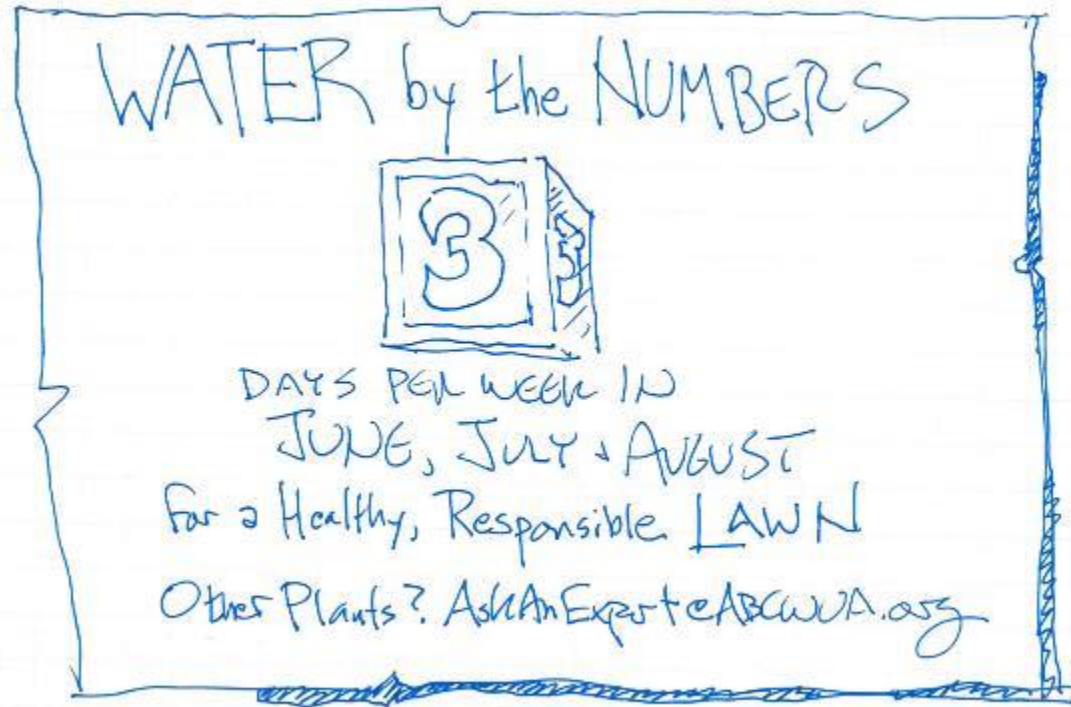 WATER by the NUMBERS
3 3
DAYS PER WEEK IN
JUNE, JULY & AUGUST
For a Healthy, Responsible LAWN
Other Plants? AskAnExpert@ABCWUA.org